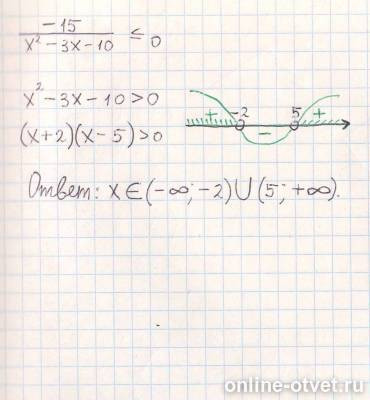 -15/(x² - 3x - 10) ≤ 0
x² - 3x - 10 > 0
(x+2)(x-5) > 0
+ -2 - 5 +
Ответ: x ∈ (-∞; -2) ∪ (5; +∞).
online-otvet.ru